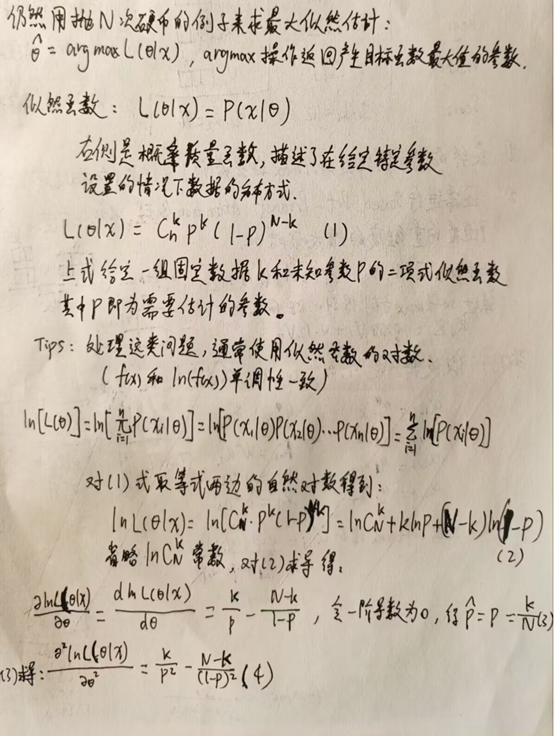 仍然用抛N次硬币的例子来求最大似然估计:
θ̂ = argmax L(θ|x), argmax操作返回产生目标函数最大值的参数.
似然函数: L(θ|x) = P(x|θ)
右侧是概率质量函数, 描述了在给定特定参数
设置的情况下数据的分布方式.
L(θ|x) = C_n^k p^k (1-p)^{N-k} (1)
上式给定一组固定数据k和未知参数P的二项式似然函数
其中P即为需要估计的参数。
Tips: 处理这类问题, 通常使用似然函数的对数.
(f(x)和ln(f(x))单调性一致)
ln[L(θ)] = ln[∏_{i=1}^n P(xi|θ)] = ln[P(x1|θ)P(x2|θ)⋯P(xn|θ)] = Σ_{i=1}^n ln[P(xi|θ)]
对(1)式取等式两边的自然对数得到:
ln L(θ|x) = ln[C_N^k · p^k (1-p)^{N-k}] = ln C_N^k + k ln p + (N-k) ln(1-p)
(2)
省略 ln C_N^k 常数, 对(2)求导得:
∂lnL(θ|x)/∂θ = d ln L(θ|x)/dθ = k/p - (N-k)/(1-p), 令一阶导数为0, 得 p̂ = p = k/N (3)
(3)求得: ∂²lnL(θ|x)/∂θ² = k/p² - (N-k)/(1-p)² (4)